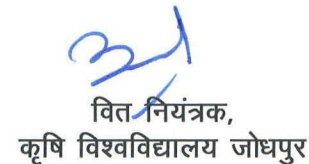 वित नियंत्रक,
कृषि विश्वविद्यालय जोधपुर